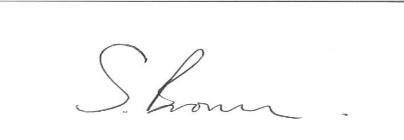 S. Brown